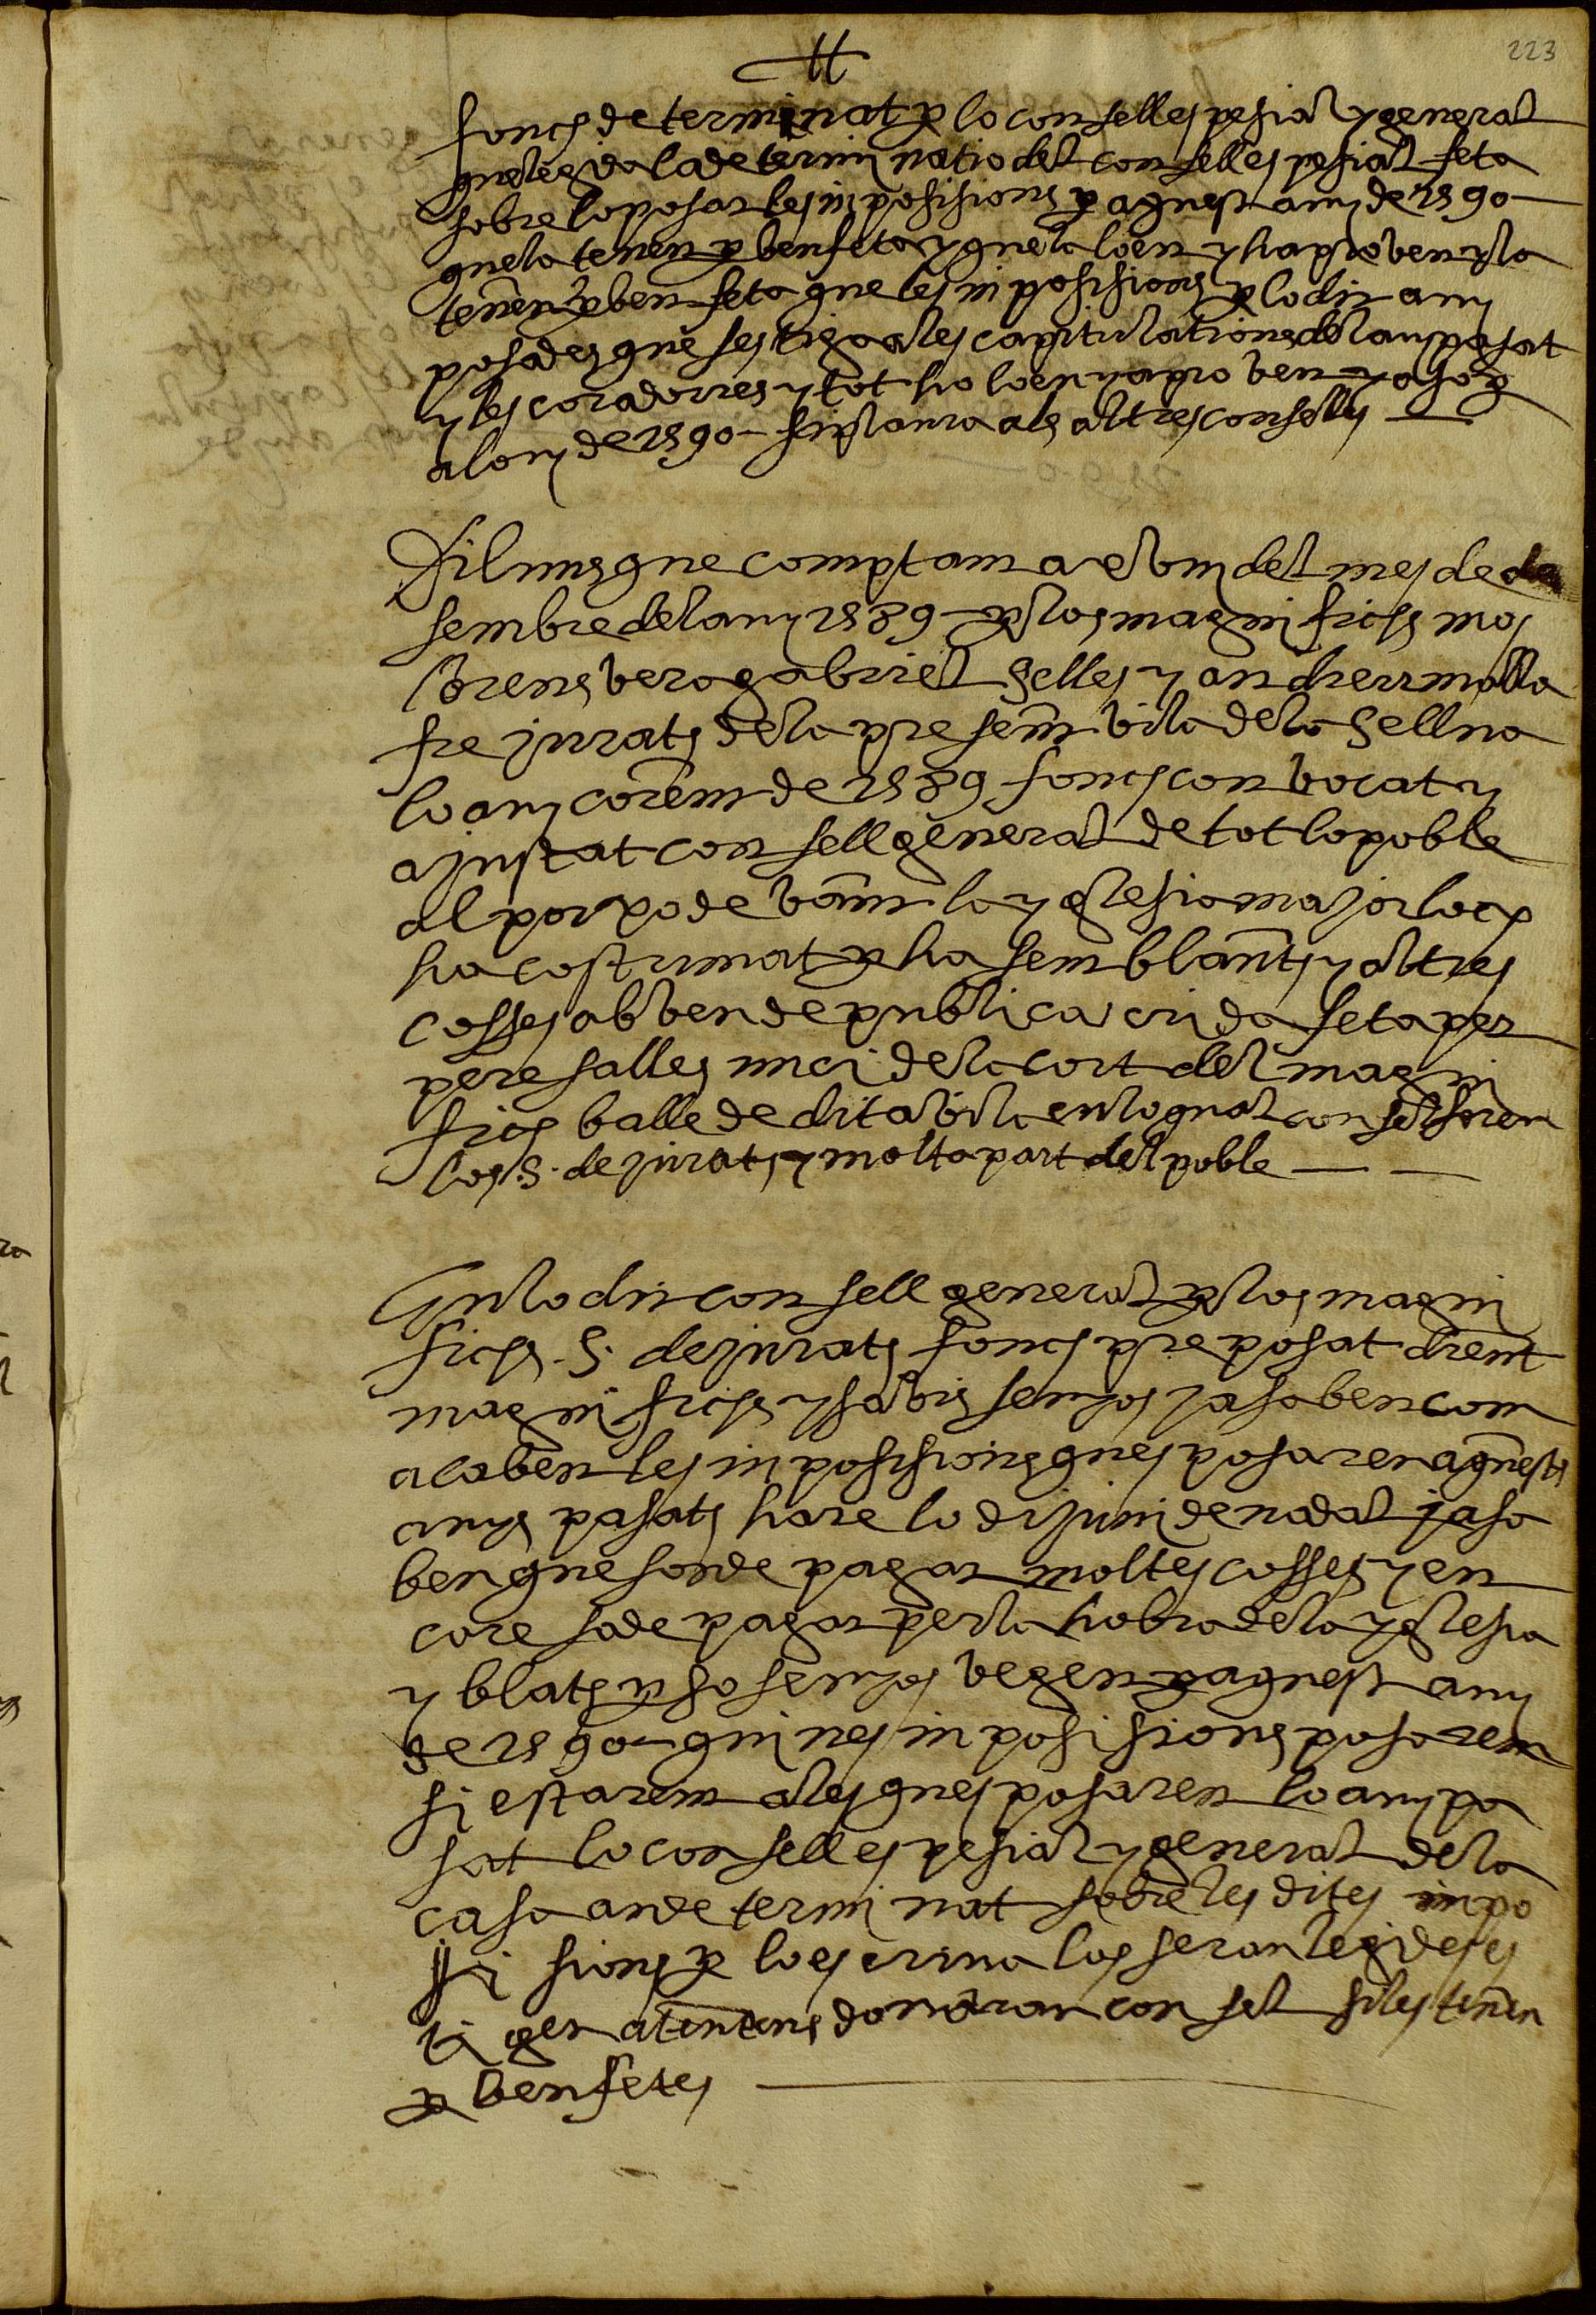 223
fonch determinat per lo consell espesial y general
que legida la determinatio del consell espesial feta
sobre lo posar les inposisions per aquest any de 1590
que la tenen per ben feta y que la loen y haproven y la
tenen per ben feta que les inposisions per lo dit any
posades que sestiga a les capitulations del any pasat
y les coradories y tot ho loen y aproven y aso per
al any de 1590
als altres consells
Dilluns que comptam a del mes de de
sembre del any 1589 per los magnifichs mos
Lorens vera gabriel Selles y andreu molla
fre jurats de la present vila de la Sellua
lo any corent de 1589 fonch convocat y
ajustat consell general de tot lo poble
al porxo devant la yglesia major loch
hacostumat per ha semblants y altres
cosses ab veu de publica crida feta per
pere salles nnci de la cort del magni
fich balle de dita vila en lo qual consell foren
los S. de jurats y molta part del poble
En lo dit consell general per los magni
fichs S. de jurats fonch preposat dient
magnifichs y savis senyos ja saben com
acaben les inposisions ques posaren aquests
anys pasats hare lo di juni de nadal ja sa
ben que san de pagar moltes cosses y en
care sa de pagar per la hobra de la yglesia
y blats y so senyos vegen per aquest any
de 1590 quines inposisions posarem
si estarem a les ques posaren lo any pa
sat lo consell espesial y general de la
casa an determinat sobre les dites inpo
si sions per lo escriva los seran legides es
ti gen atentens donaran consel si les tenen
per ben fetes